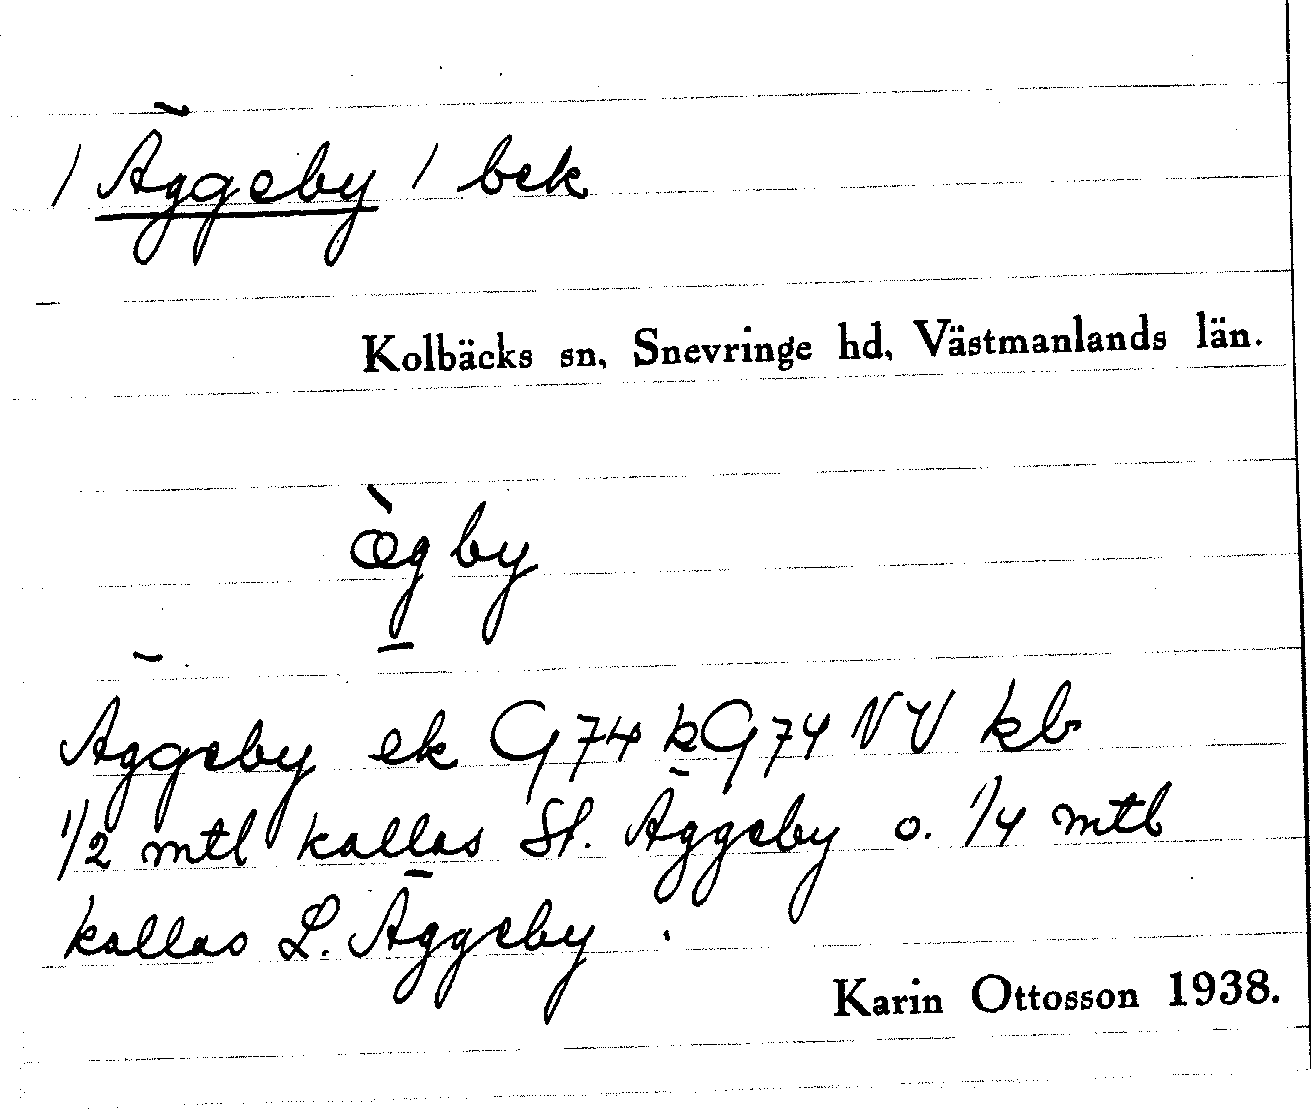 / Äggeby / bek
Kolbäcks sn, Snevringe hd, Västmanlands län.
æ̀g by
Äggeby ek G74 k G74 NV kb
1/2 mtl kallas St. Äggeby o. 1/4 mtl
kallas L. Äggeby.
Karin Ottosson 1938.